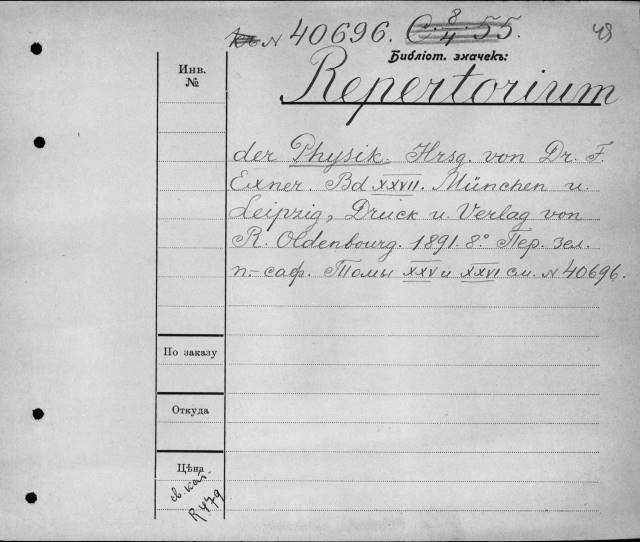 къ N 40696. C 8/4. 55. 49
Библіот. значекъ:
Инв. №
Repertorium
der Physik. Hrsg. von Dr. F.
Exner. Bd XXVII. München u.
Leipzig, Druck u. Verlag von
R. Oldenbourg. 1891. 8° Пер. зел.
п.-саф. Томы XXV и XXVI см. N 40696.
По заказу
Откуда
Цѣна
R 479